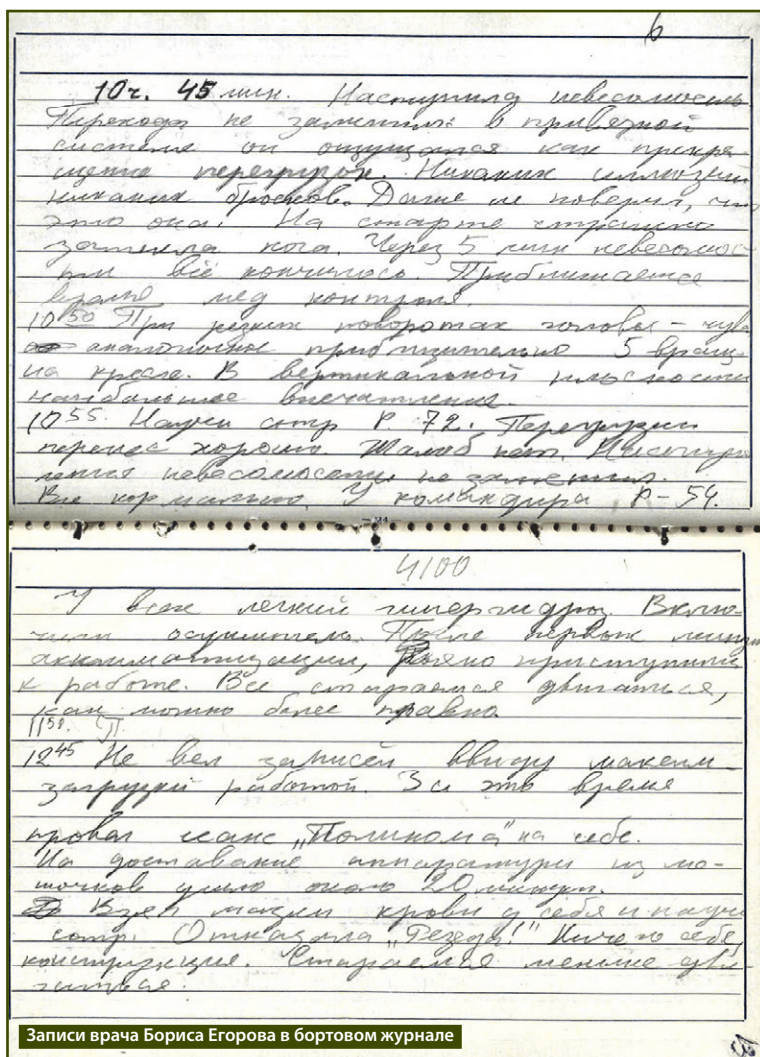 6
10 ч. 45 мин. Наступила невесомость
Перехода не заметил: в привязной
системе он ощущался как прекра-
щение перегрузок. Никаких иллюзий
никаких бросков. Даже не поверил, что
это она. На старте страшно
затекла нога. Через 5 мин невесомос-
ти всё кончилось. Приближается
время мед контроля.
10 50 При резких поворотах головы – чувс
аналогичное приблизительно 5 вращ.
на кресле. В вертикальной плоскости
наибольшее впечатление.
10 55. Научн сотр P. 72. Перегрузки
перенес хорошо. Жалоб нет. Наступ
ления невесомости не заметил.
Все нормально. У командира P – 54.
4100
У всех легкий гипергидроз. Вклю-
чили осушитель. После первых минут
акклиматизации, рьяно приступили
к работе. Все стараемся двигаться,
как можно более плавно
11 50.
12 45 Не вел записей ввиду максим.
загрузки работой. За это время
провел сеанс „Полинома" на себе.
На доставание аппаратуры из ме-
шочков ушло около 20 минут.
Взял мазки крови у себя и научн
сотр. Отказала „Резеда!" Ничего себе,
конструкция. Стараемся меньше дви-
гаться.
Записи врача Бориса Егорова в бортовом журнале